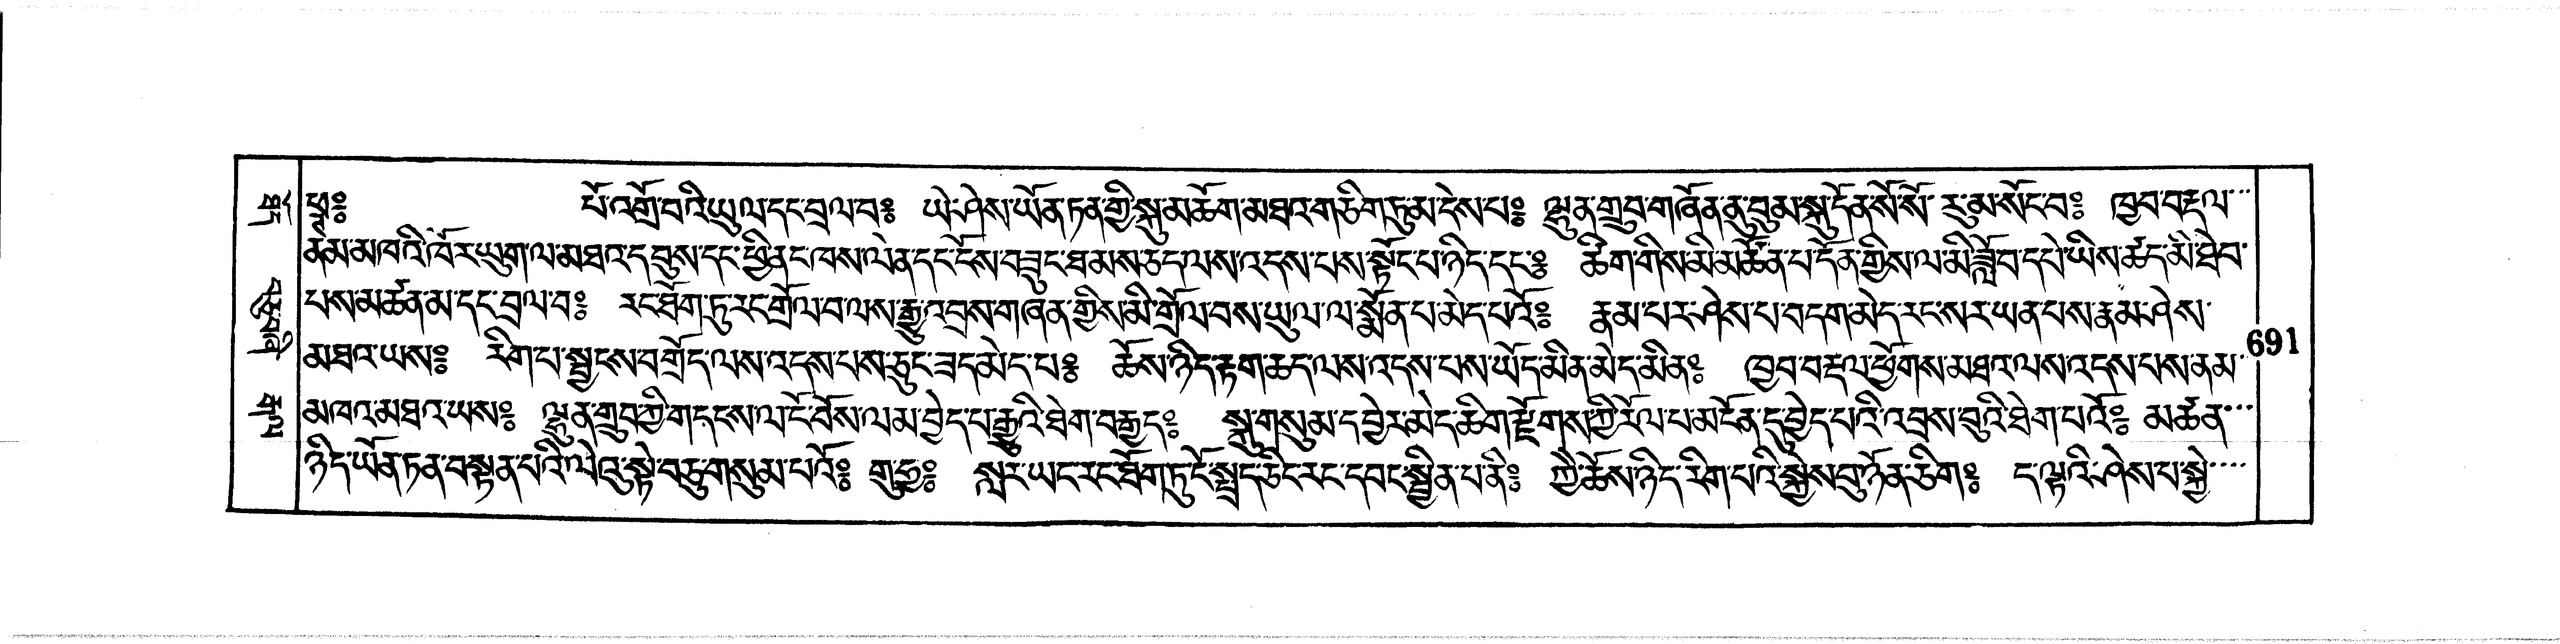 ཕྲ༔ པོ་འགྲོ་བའི་ཡུལ་དང་བྲལ་བ༔ ཡེ་ཤེས་ཡོན་ཏན་གྱི་སྐུ་མཆོག་མཐའ་གཅིག་ཏུ་མ་ངེས་པ༔ ལྷུན་གྲུབ་གཞོན་ནུ་བུམ་སྐུ་དོན་སོ་སོ་རུ་མ་སོང་བ༔ ཁྱབ་བརྡལ་
ནམ་མཁའི་ཁོར་ཡུག་ལ་མཐའ་དབུས་དང་ཕྱི་ནང་ཁས་ལེན་དང་ངོས་བཟུང་ཐམས་ཅད་ལས་འདས་པས་སྟོང་པ་ཉིད་དང་༔ ཚིག་གིས་མི་མཚོན་པ་དོན་གྱིས་ལ་མི་ཟློབ་དཔེ་ཡིས་ཚད་མི་ཐེབ་
པས་མཚན་མ་དང་བྲལ་བ༔ རང་ཐོག་ཏུ་རང་གྲོལ་བ་ལས་རྒྱུ་འབྲས་གཞན་གྱིས་མི་གྲོལ་བས་ཡུལ་ལ་སྨོན་པ་མེད་པའོ༔ རྣམ་པར་ཤེས་པ་བདག་མེད་རང་སར་ཡན་པས་རྣམ་ཤེས་
མཐའ་ཡས༔ རིག་པ་སྦྱངས་བགྲོད་ལས་འདས་པས་ཅུང་ཟད་མེད་པ༔ ཆོས་ཉིད་རྟག་ཆད་ལས་འདས་པས་ཡོད་མིན་མེད་མིན༔ ཁྱབ་བརྡལ་ཕྱོགས་མཐའ་ལས་འདས་པས་ནམ་
མཁའ་མཐའ་ཡས༔ ལྷུན་གྲུབ་ཀྱི་གདངས་ལ་ངོ་བོས་ལམ་བྱེད་པ་རྒྱུའི་ཐེག་བརྒྱད༔ སྐུ་གསུམ་དབྱེར་མེད་ཆིག་རྫོགས་ཀྱི་རོལ་པ་མངོན་དུ་བྱེད་པའི་འབྲས་བུའི་ཐེག་པའོ༔ མཚན་
ཉིད་ཡོན་ཏན་བསྟན་པའི་ལེའུ་སྟེ་བཅུ་གསུམ་པའོ༔ གུ་ཧྱ༔ སླར་ཡང་རང་ཐོག་ཏུ་ངོ་སྤྲད་ཅིང་རང་དབང་སྦྱིན་པ་ནི༔ ཀྱེ་ཆོས་ཉིད་རིག་པའི་སྐྱེས་བུ་ཉོན་ཅིག༔ ད་ལྟའི་ཤེས་པ་སྐྱེ་
691